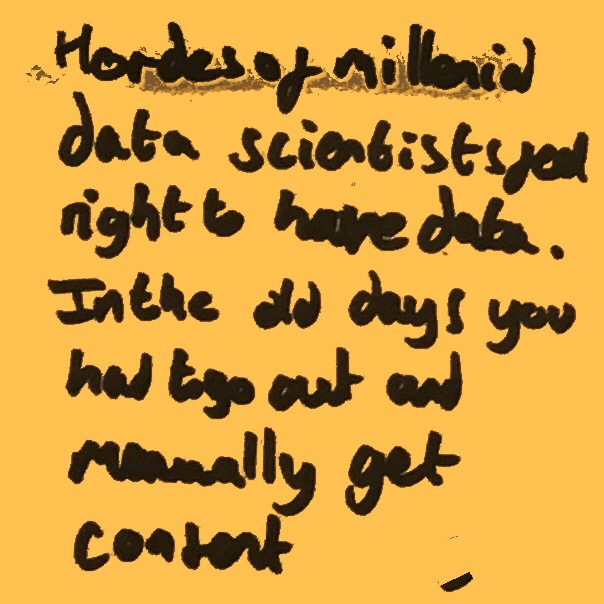 Hordes of millenial
data scientists feel
right to have data.
In the old days you
had to go out and
manually get
content